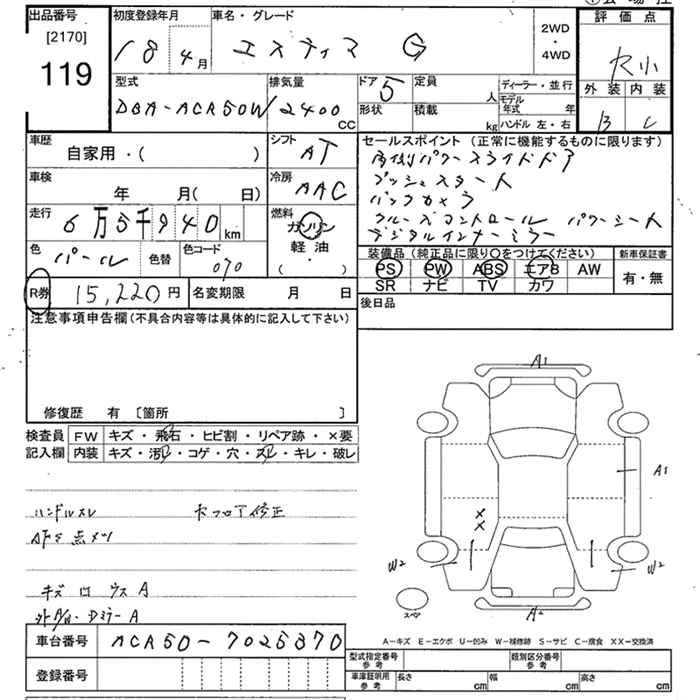 出品番号
[2170]
119
初度登録年月
18 4月
車名・グレード
エスティマ G
2WD
・
4WD
評価点
R小
外装 内装
B C
型式
DBA-ACR50W
排気量
2400 CC
ドア 5
形状
定員 人
積載 kg
ディーラー・並行
モデル年式 年
ハンドル 左・右
車歴
自家用・( )
シフト
AT
車検
年 月(日)
冷房
AAC
走行
6万5千940km
燃料
ガソリン
軽油
・( )
色
パール
色替
色コード
070
セールスポイント(正常に機能するものに限ります)
両側パワースライドドア
プッシュスタート
バックカメラ
クルーズコントロール パワーシート
デジタルインナーミラー
装備品(純正品に限り○をつけてください)
PS PW ABS エアB AW
SR ナビ TV カワ
新車保証書
有・無
R券
15,220円
名変期限 月 日
後日品
注意事項申告欄(不具合内容等は具体的に記入して下さい)
修復歴 有 〔箇所 〕
検査員
記入欄
FW キズ・飛石・ヒビ割・リペア跡・×要
内装 キズ・汚・コゲ・穴・スレ・キレ・破レ
ハンドルスレ
修正
キズ
A
A1
A1
X
X
W2
W2
A2
スペア
A-キズ E-エクボ U-凹み W-補修跡 S-サビ C-腐食 XX-交換済
車台番号
ACR50-7025370
登録番号
型式指定番号
参考
類別区分番号
参考
車庫証明用
参考
長さ cm
幅 cm
高さ cm